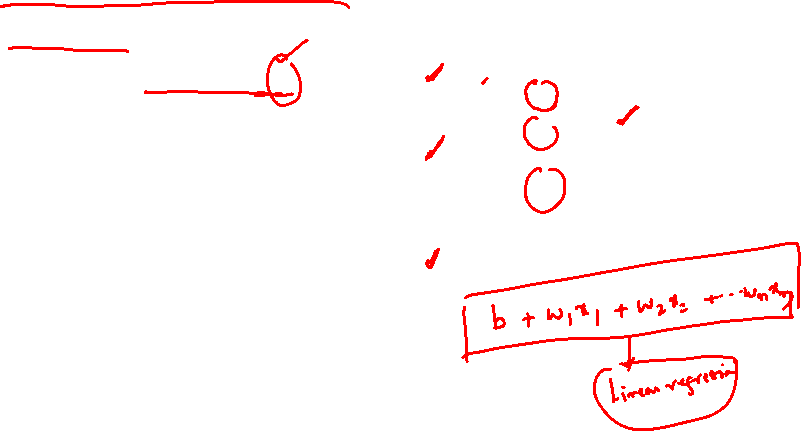 b + w₁x₁ + w₂x₂ + ... wₙxₙ
Linear regression